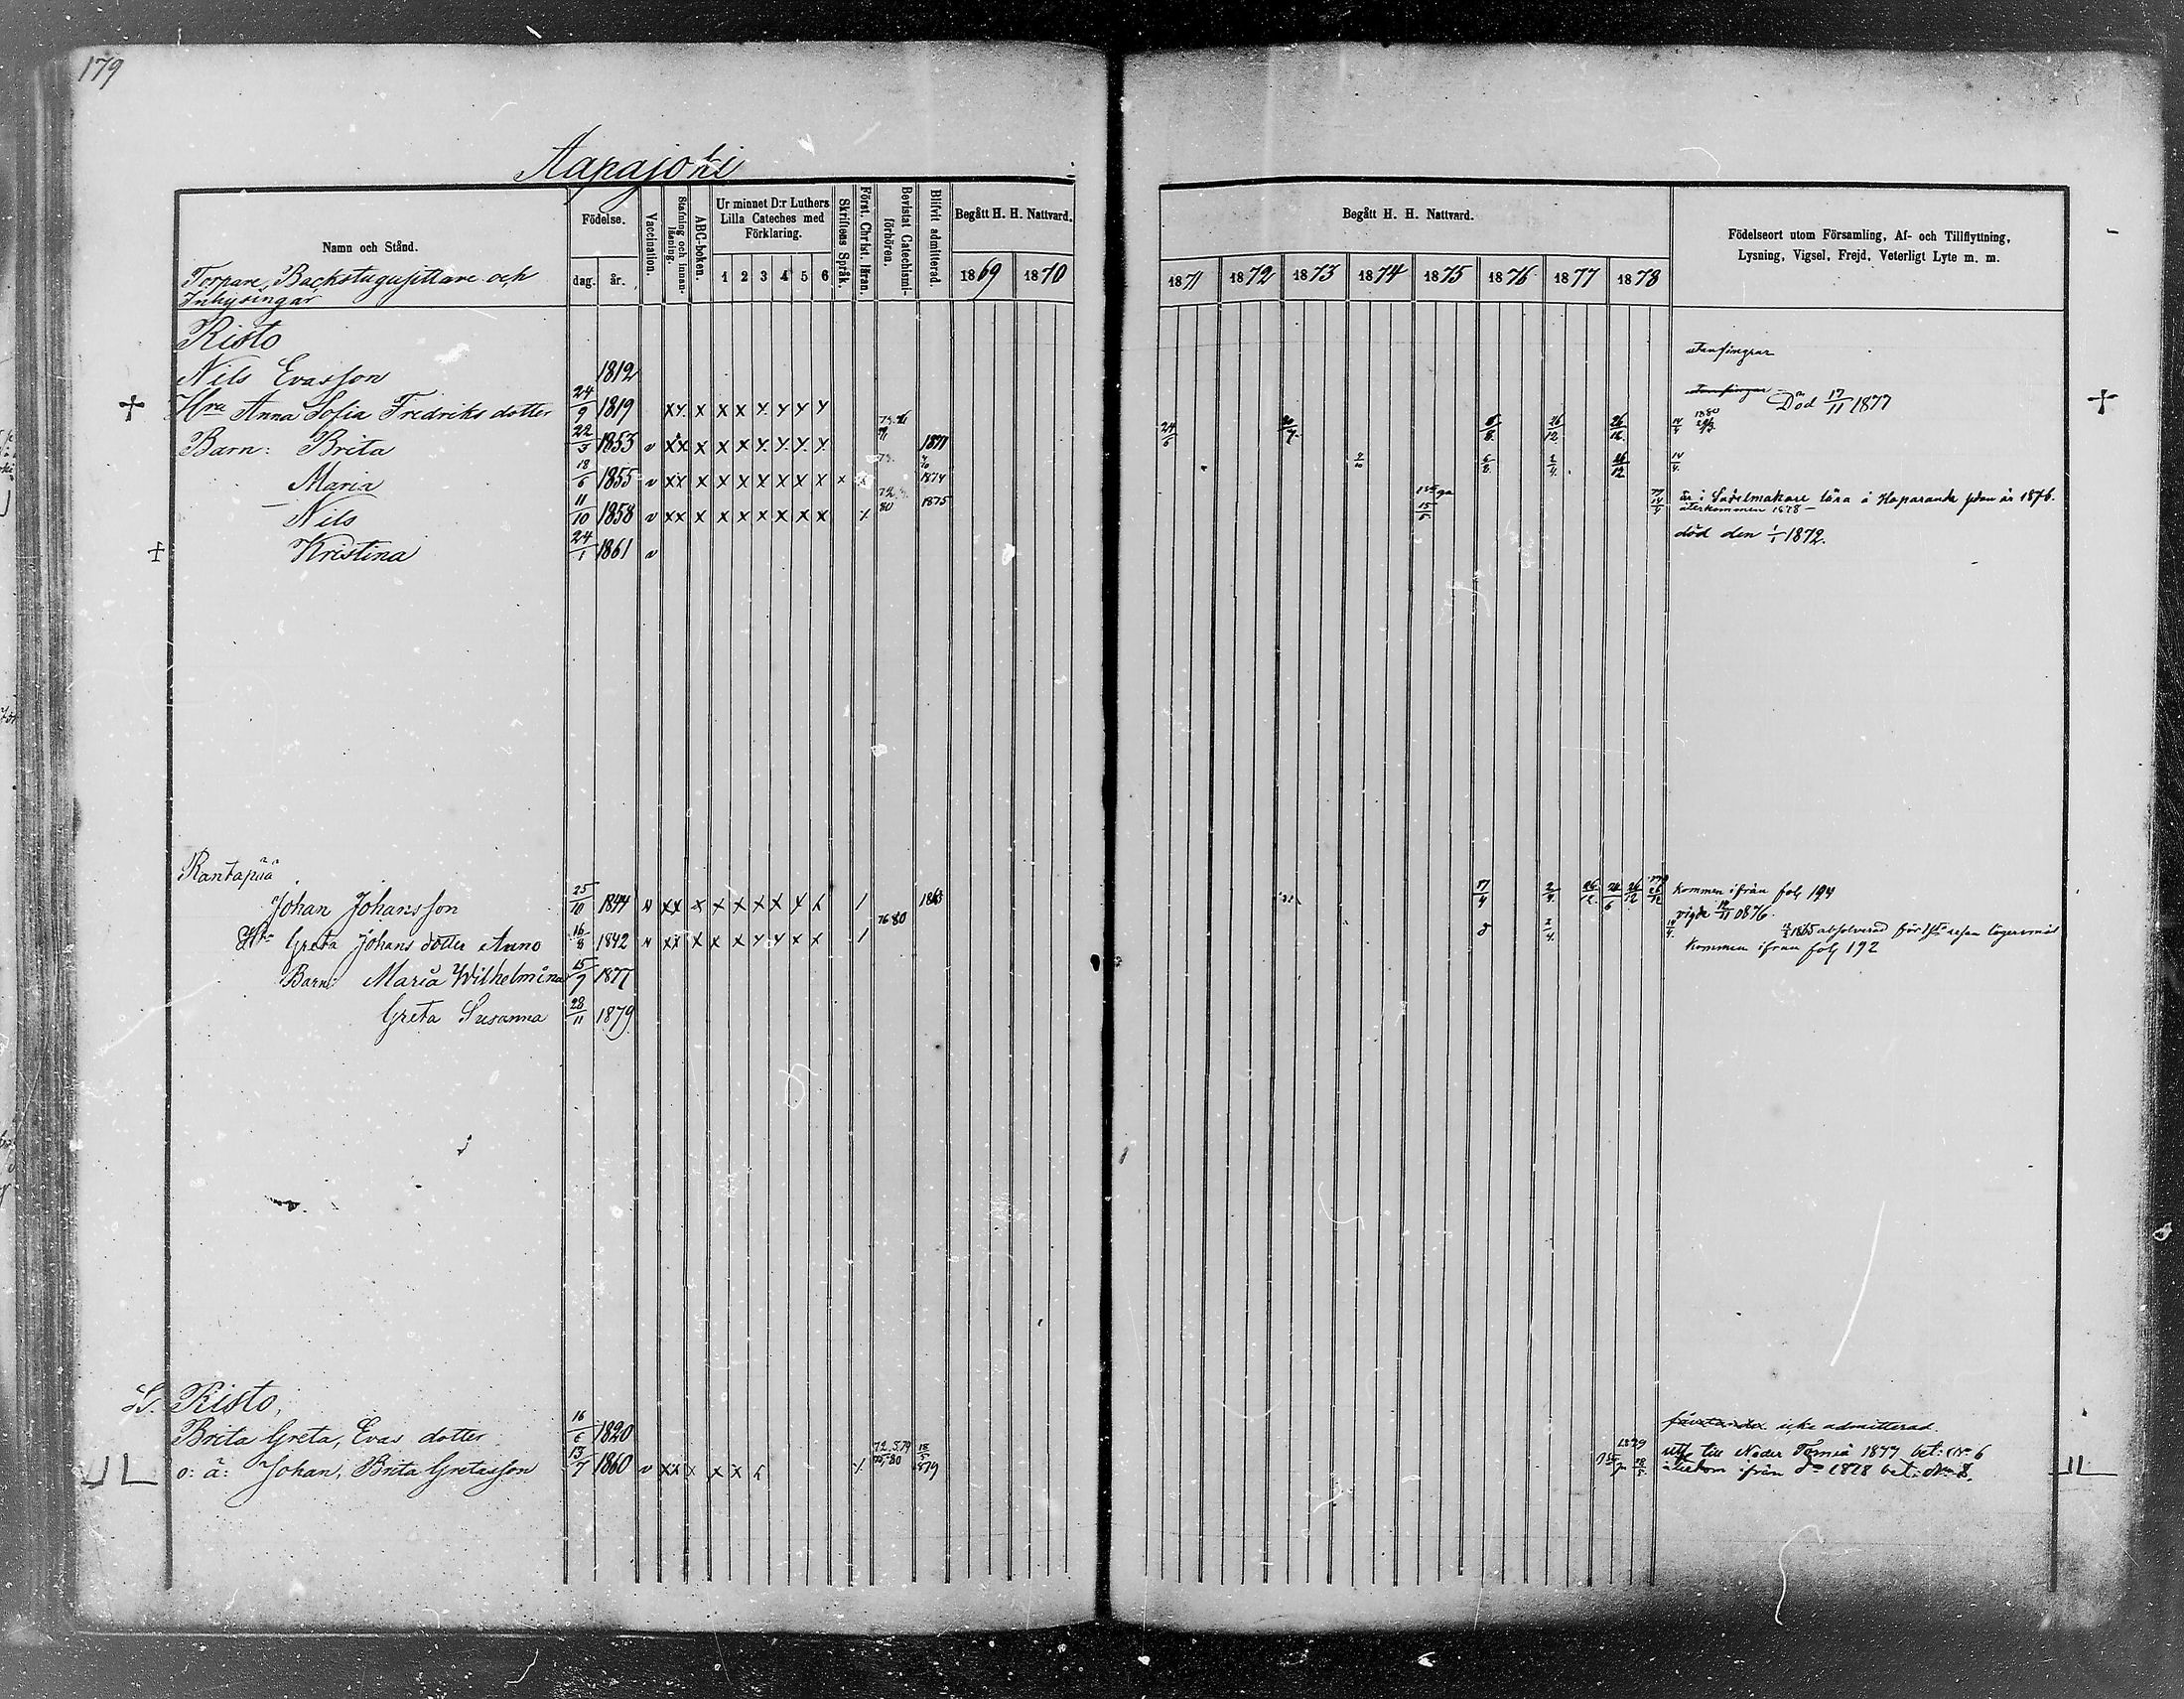 179
Aapajoki
Namn och Stånd.
Födelse.
Vaccination.
Stafning och innanläsning.
ABC-boken.
Ur minnet D:r Luthers Lilla Cateches med Förklaring.
Skriftens Språk.
Först. Christ. läran.
Bevistat Catechismiförhören.
Blifvit admitterad.
Begått H. H. Nattvard.
Begått H. H. Nattvard.
Födelseort utom Församling, Af- och Tillflyttning,
Lysning, Vigsel, Frejd, Veterligt Lyte m. m.
Torpare, Backstugusittare och
Inhysingar
dag. år. 1 2 3 4 5 6 1869 1870 1871 1872 1873 1874 1875 1876 1877 1878
Risto
Nils Evasson 1812
Hru Anna Sofia Fredriks dotter 24/9 1819 xx x x x x x x x Död 17/11 1877
Barn: Brita 22/3 1853 v xx x x x x x x x 1871 24/6 26/12
Maria 18/6 1855 v xx x x x x x x x x 1874 26/12 14/4
Nils 11/10 1858 v xx x x x x x x x 1875 är i Sadelmakare lära i Haparanda sedan år 1876.
återkommen 1878 –
Kristina 24/1 1861 v död den 1/1 1872.
Rantapää
Johan Johansson 25/10 1844 v xx x x x x x x x 1863 2/4 26/12 kommen ifrån fol 194
vigde 12/11 1876.
Hru Greta Johans dotter Anno 16/8 1842 v xx x x x x x x x 76 80 2/4 1865 absolverad för 1sta resan lägersmål
kommen ifrån fol 192
Barn: Maria Wilhelmina 15/9 1877
Greta Susanna 28/11 1879
Risto,
Brita Greta, Evas dotter 16/6 1820 icke admitterad.
o: ä: Johan, Brita Gretasson 13/7 1860 v xx x x x 1879 utfl till Neder Torneå 1877 bet: No 6
återkom ifrån do 1878 bet: No 8.